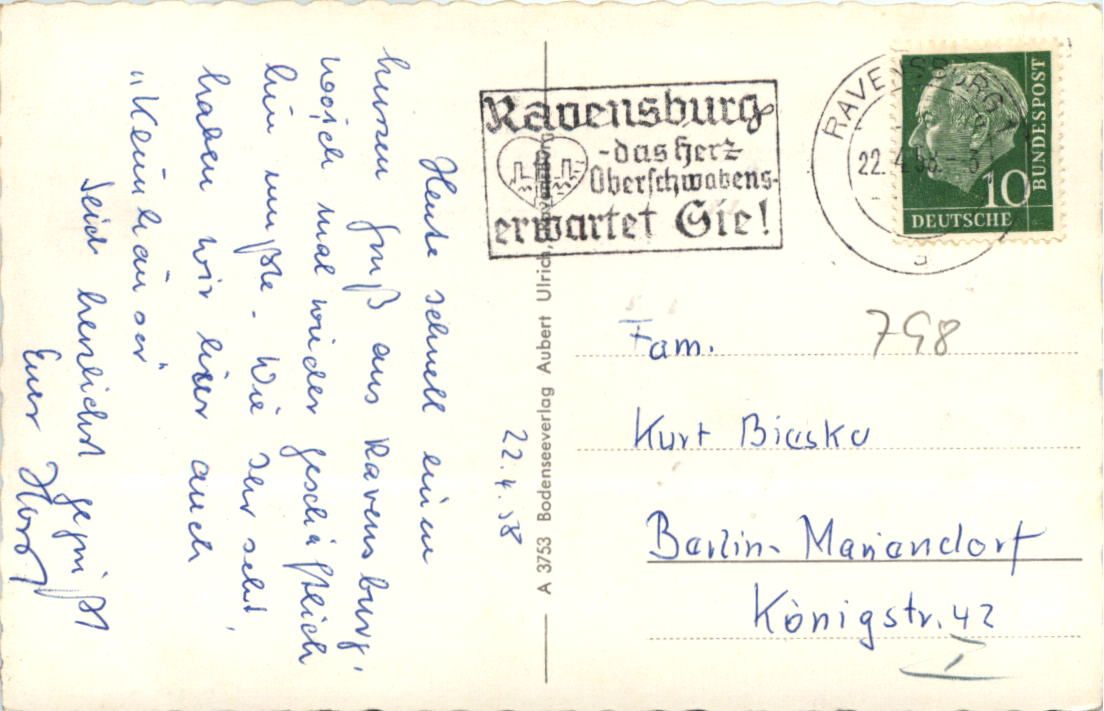 22.4.58
Heute schnell einen
kurzen Gruß aus Ravensburg,
wo ich mal wieder geschäftlich
hin mußte. Wie Ihr seht,
haben wir hier auch
"Kleinhäuser"
Seid herzlichst gegrüßt
Euer Horst
A 3753 Bodenseeverlag Aubert Ulrich, Ravensburg
Ravensburg
-das Herz
Oberschwabens-
erwartet Sie!
RAVENSBURG 1
22. 4. 58. -
a
10
DEUTSCHE
BUNDESPOST
798
Fam.
Kurt Biaska
Berlin-Mariendorf
Königstr. 42
I